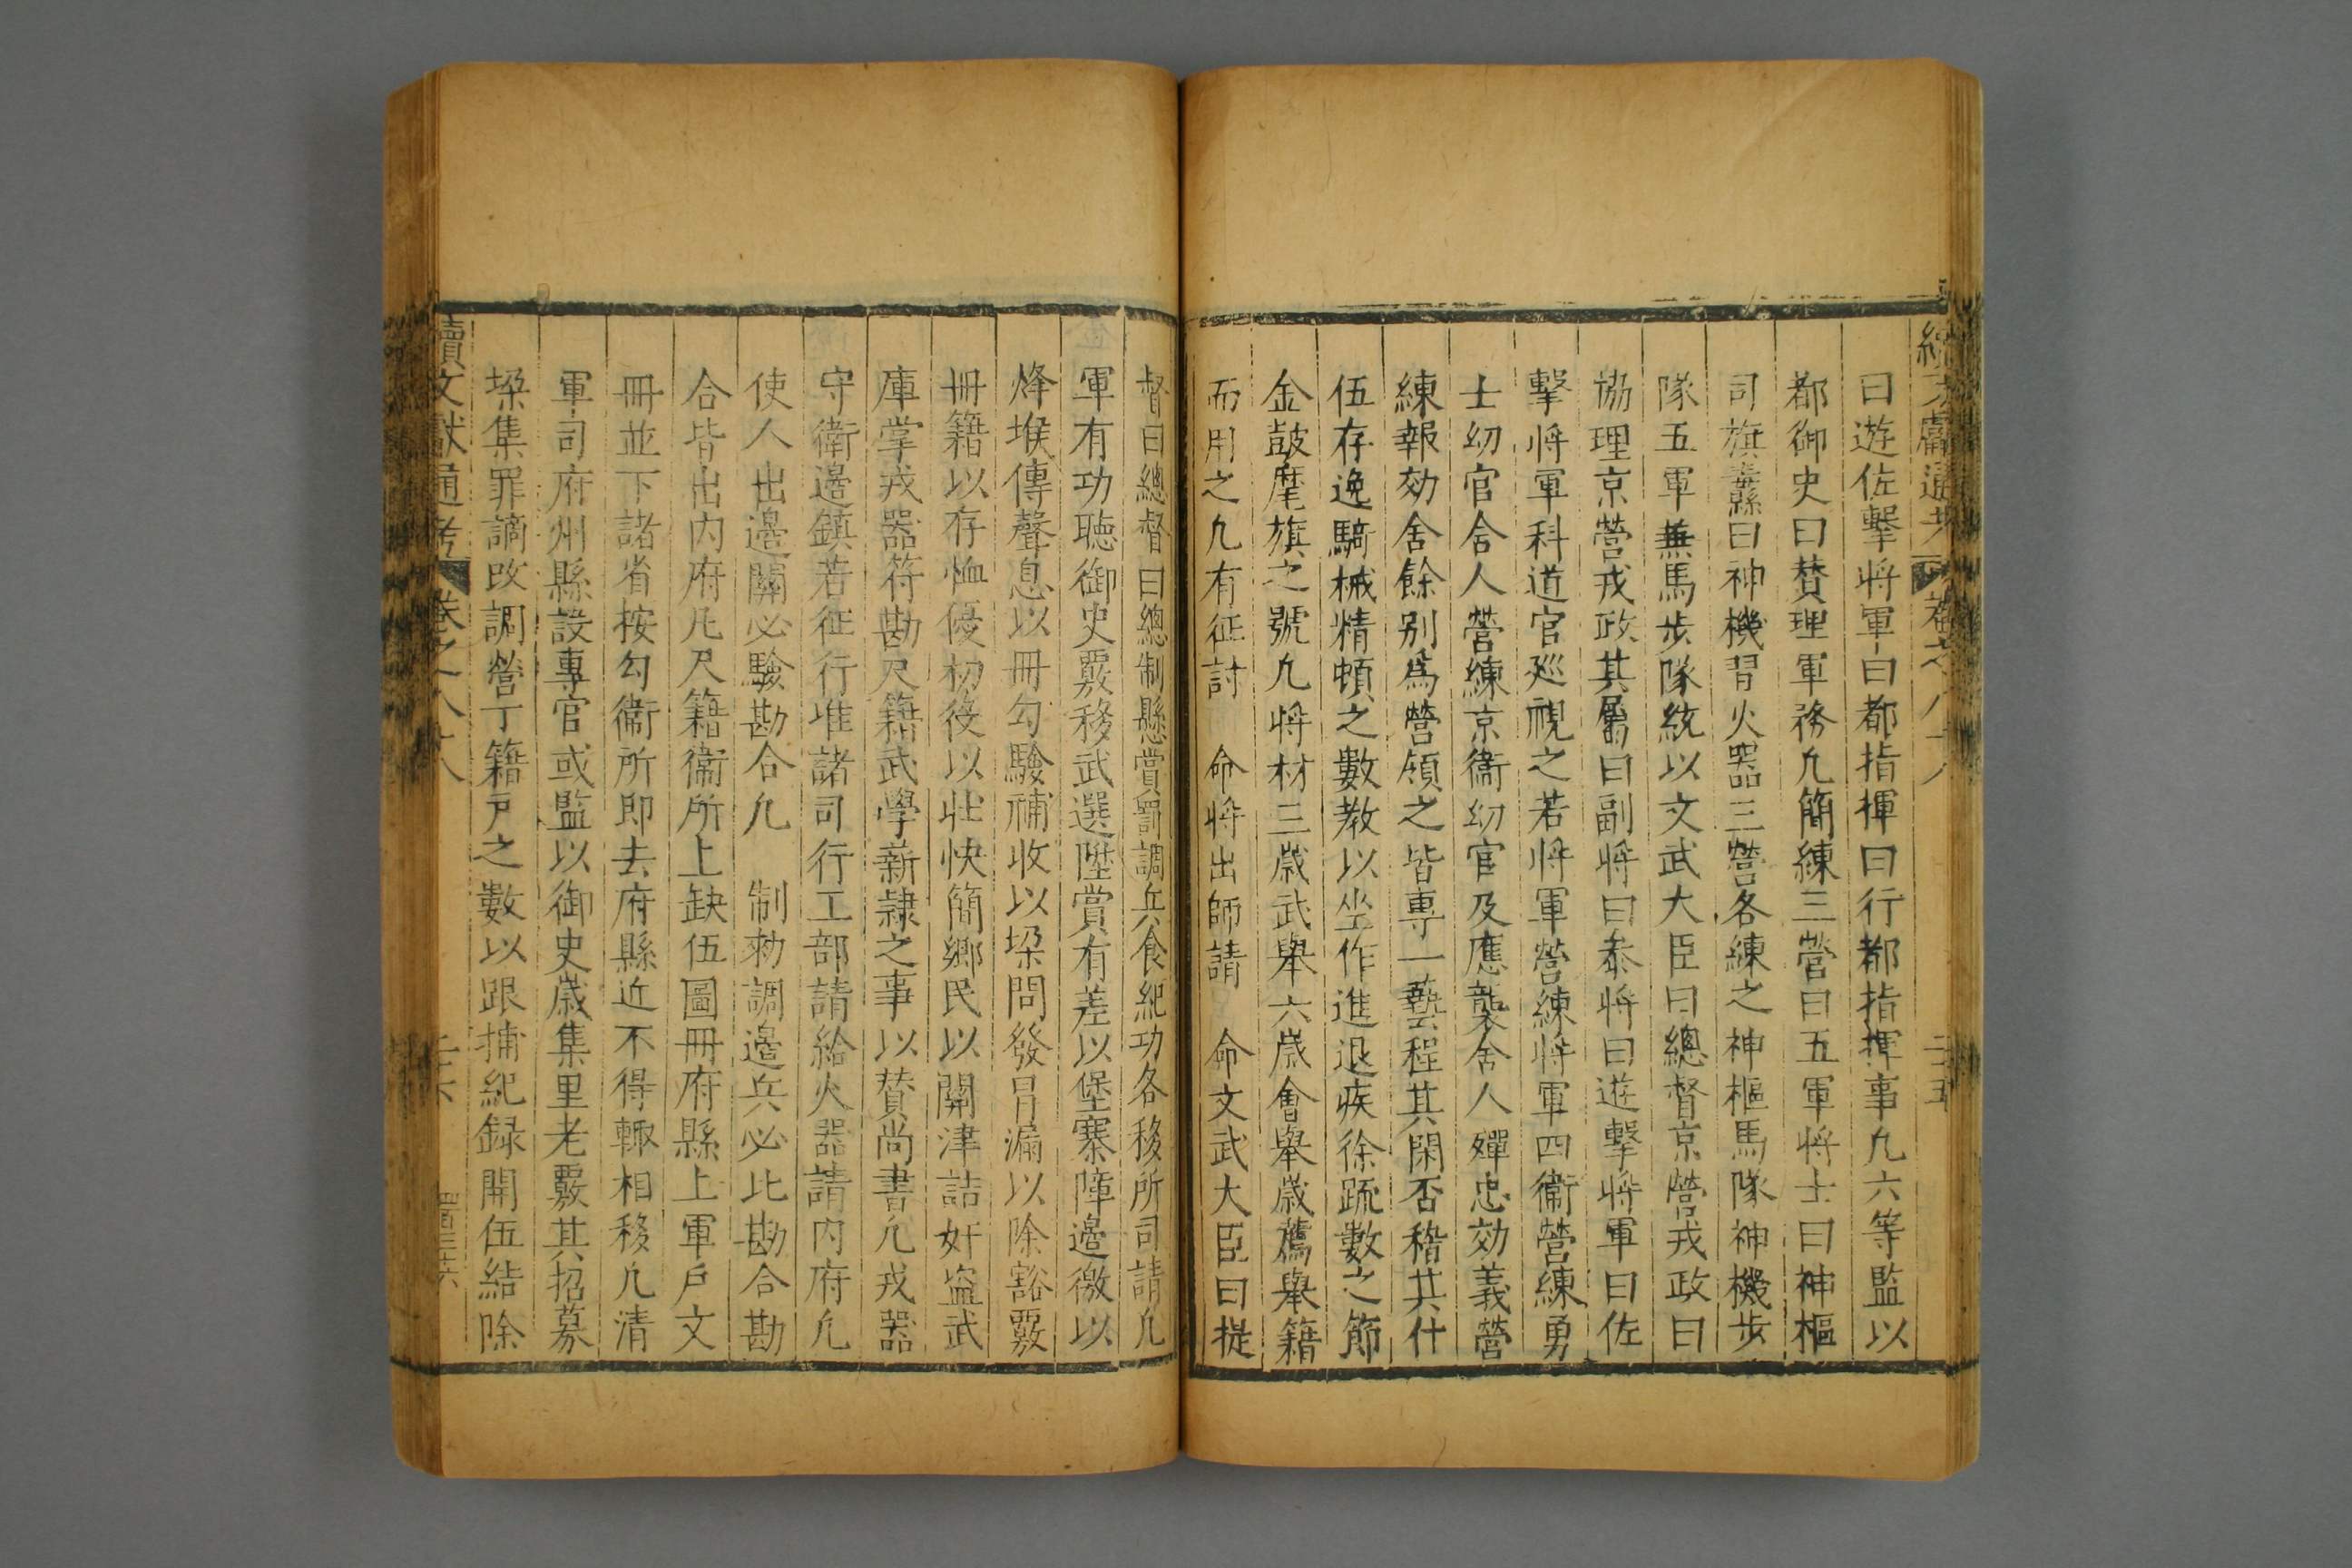 續文獻通考 卷之八十八 二十五
曰遊佐擊将軍曰都指揮曰行都指揮事凢六等監以
都御史曰賛理軍務凢簡練三營曰五軍将士曰神樞
司旗纛縣曰神機習火器三營各練之神樞馬隊神機步
隊五軍兼馬步隊統以文武大臣曰總督京營戎政曰
協理京營戎政其屬曰副将曰叅将曰遊擊将軍曰佐
擊将軍科道官廵視之若将軍營練将軍四衞營練勇
士幼官舍人營練京衞幼官及應襲舍人殫忠効義營
練報効舍餘别爲營領之皆專一藝程其閑否稽其什
伍存逸騎械精頓之數教以坐作進退疾徐䟽數之節
金鼓麾旗之號凢将材三歲武舉六歲會舉歲薦舉籍
而用之凢有征討 命将出師請 命文武大臣曰提
督曰總督曰總制懸賞罰調兵食紀功各移所司請凢
軍有功聽御史覈移武選陞賞有差以堡寨障邉徼以
烽堠傳聲息以冊勾驗補收以垜問發冒漏以除豁覈
冊籍以存恤優初役以壯快簡鄉民以關津詰奸盗武
庫掌戎器符勘尺籍武學薪隷之事以賛尚書凢戎器
守衛邉鎮若征行堆諸司行工部請給火器請内府凢
使人出邉關必驗勘合凢 制勑調邉兵必比勘合勘
合皆出内府凢尺籍衞所上缺伍圖冊府縣上軍戸文
冊並下諸省按勾衞所即去府縣近不得輙相移凢清
軍司府州縣設專官或監以御史歲集里老覈其招募
垜集罪謫改調營丁籍戸之數以跟捕紀録開伍結除
續文獻通考 卷之八十八 二十六